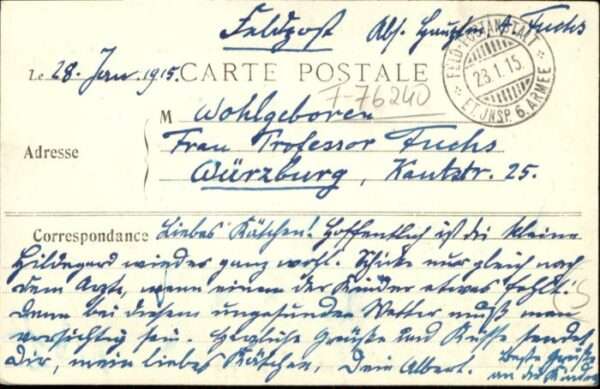 Feldpost Abs. Hauptm. A. Fuchs
Le 28. Jan. 1915. CARTE POSTALE
FELD-POSTANSTALT
23.1.15.
ET. JNSP. 6. ARMEE
F-76240
M Wohlgeboren
Adresse Frau Professor Fuchs
Würzburg, Kantstr. 25.
Correspondance Liebes Käthchen! Hoffentlich ist die kleine
Hildegard wieder ganz wohl. Schicke nur gleich nach
dem Arzte, wenn einem der Kinder etwas fehlt.
Denn bei diesem ungesunden Wetter muß man
vorsichtig sein. Herzliche Grüße und Küsse sendet
Dir, mein liebes Käthchen, Dein Albert. Beste Grüße
an die Kinder